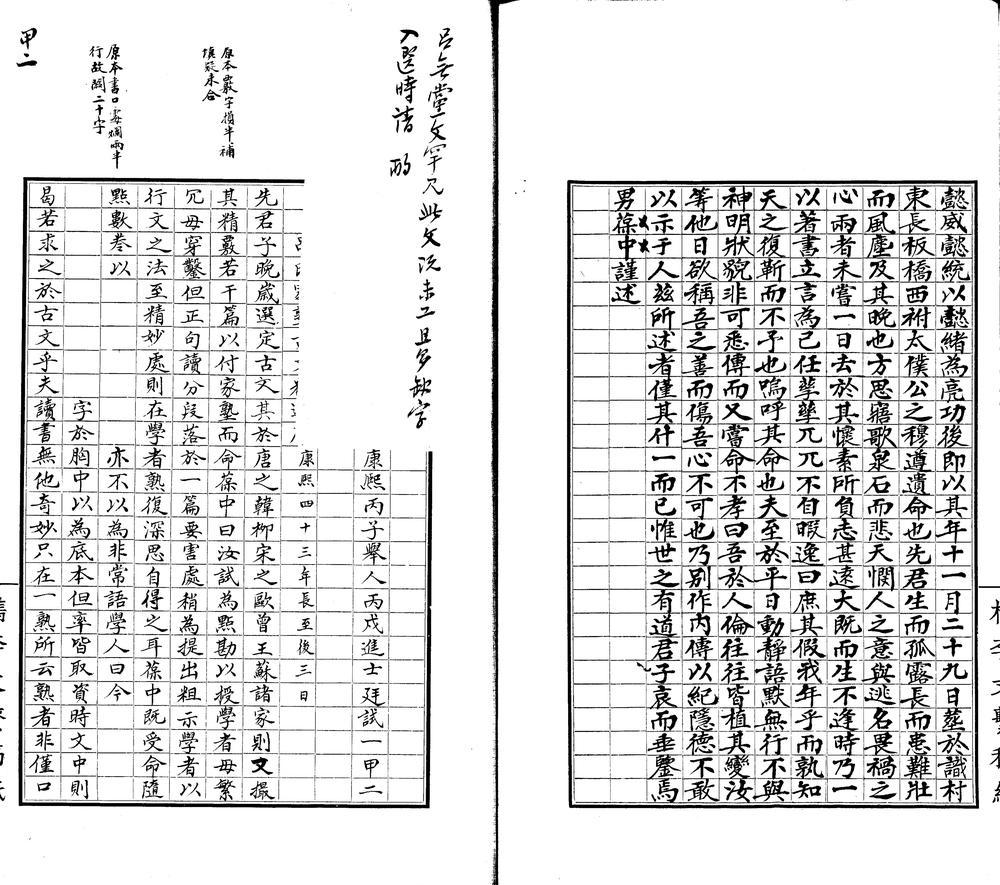 懿威懿統以懿緒為亮功後即以其年十一月二十九日葬於識村
東長板橋西祔太僕公之穆遵遺命也先君生而孤露長而患難壯
而風塵及其晚也方思寤歌泉石而悲天憫人之意與逃名畏禍之
心兩者未嘗一日去於其懷素所負志甚遠大既而生不逢時乃一
以著書立言為己任孳孳兀兀不自暇逸曰庶其假我年乎而孰知
天之復靳而不予也嗚呼其命也夫至於平日動靜語默無行不與
神明狀貌非可悉傳而又嘗命不孝曰吾於人倫往往皆植其變汝
等他日欲稱吾之善而傷吾心不可也乃別作內傳以紀隱德不敢
以示于人茲所述者僅其什一而已惟世之有道君子哀而垂鑒焉
男葆中謹述
呂無黨文罕見此文況未工且多缺字
入選時請酌
原本數字損半補
填疑未合
原本書口處爛兩半
行故闕二十字
甲二
康熙丙子舉人丙戌進士廷試一甲二
康熙四十三年長至後三日
先君子晚歲選定古文其於唐之韓柳宋之歐曾王蘇諸家則文撮
其精覈若干篇以付家塾而命葆中曰汝試為點勘以授學者毋繁
冗毋穿鑿但正句讀分段落於一篇要害處稍為提出粗示學者以
行文之法至精妙處則在學者熟復深思自得之耳葆中既受命隨
點數卷以
亦不以為非常語學人曰今
字於胸中以為底本但率皆取資時文中則
曷若求之於古文乎夫讀書無他奇妙只在一熟所云熟者非僅口